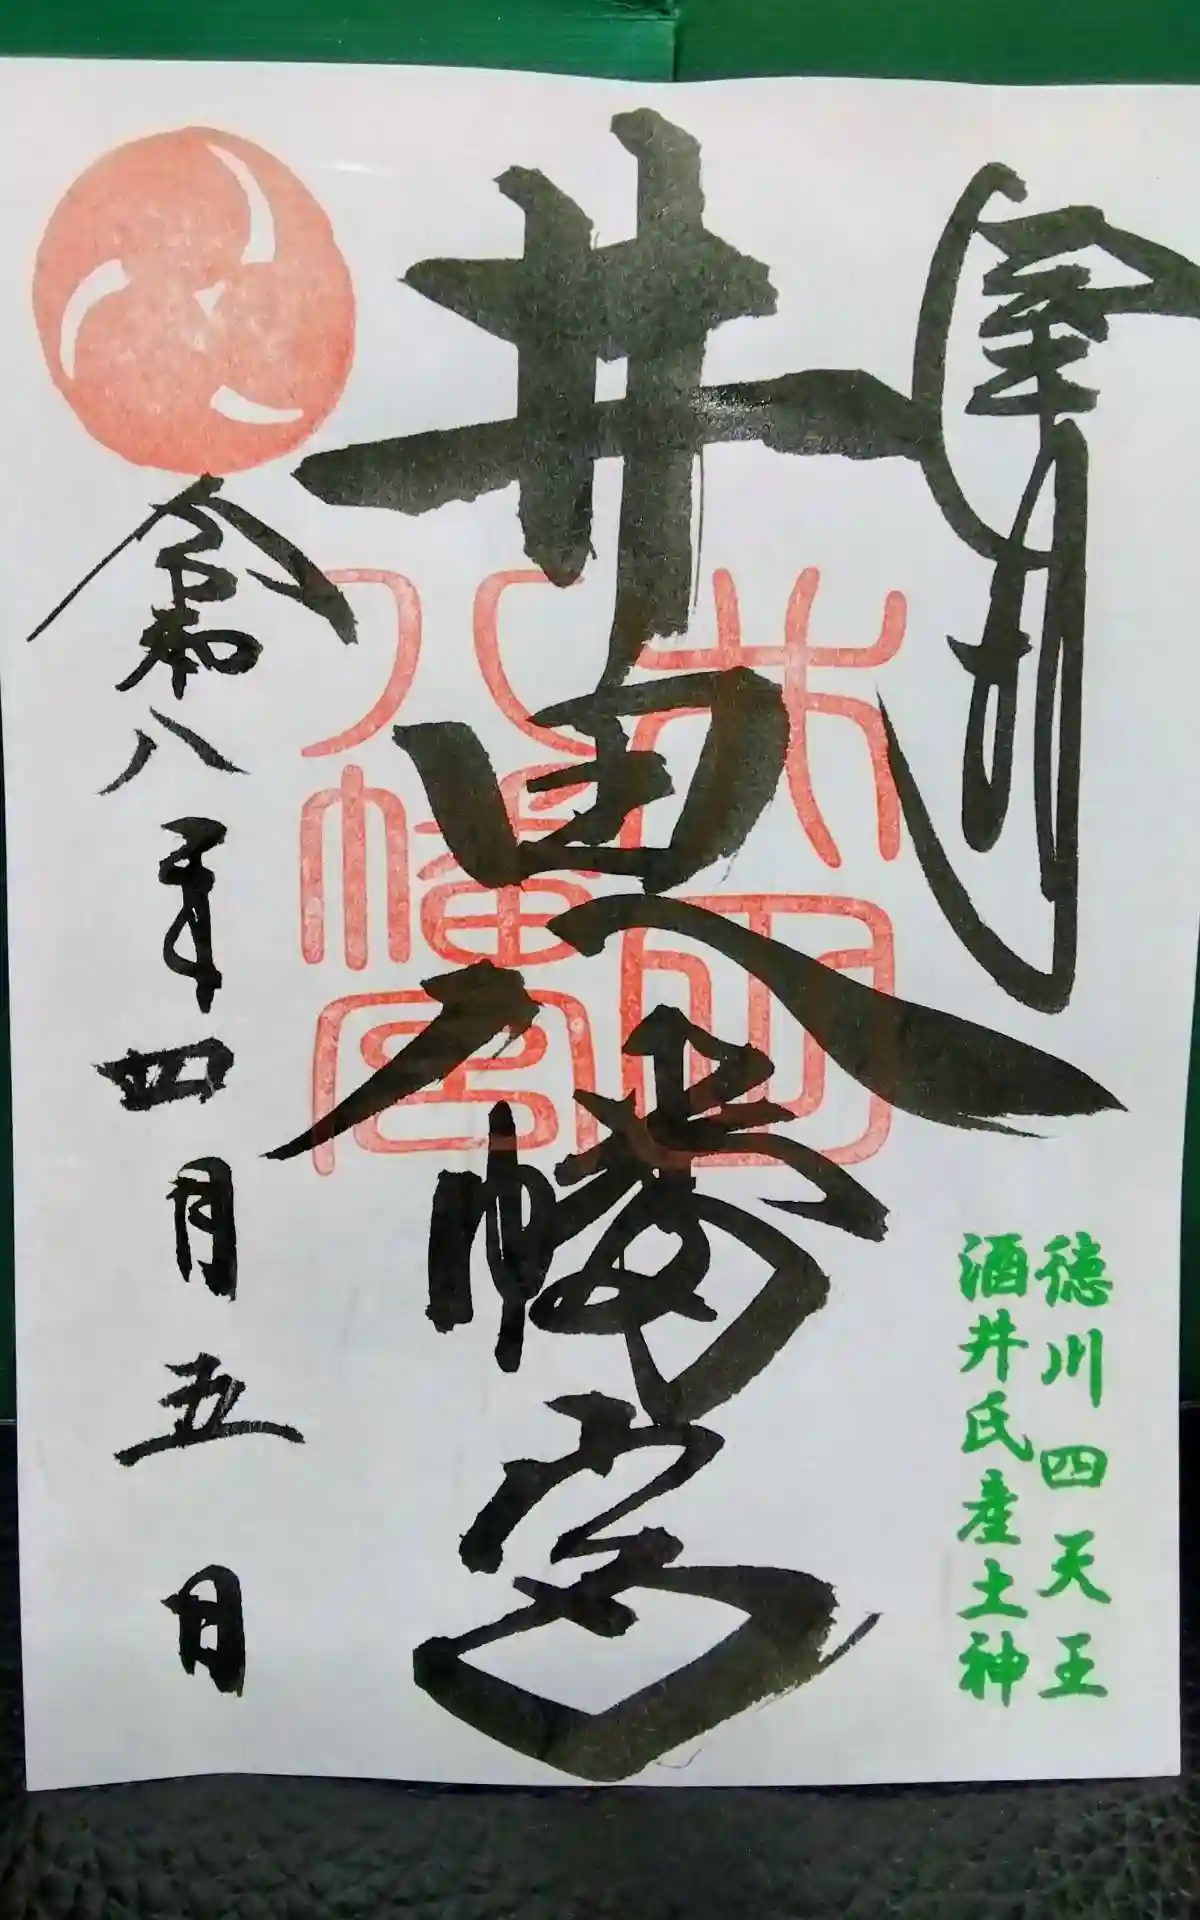 奉拝
徳川四天王
酒井氏産土神
井田八幡宮
井田
八幡宮
令和八年四月五日